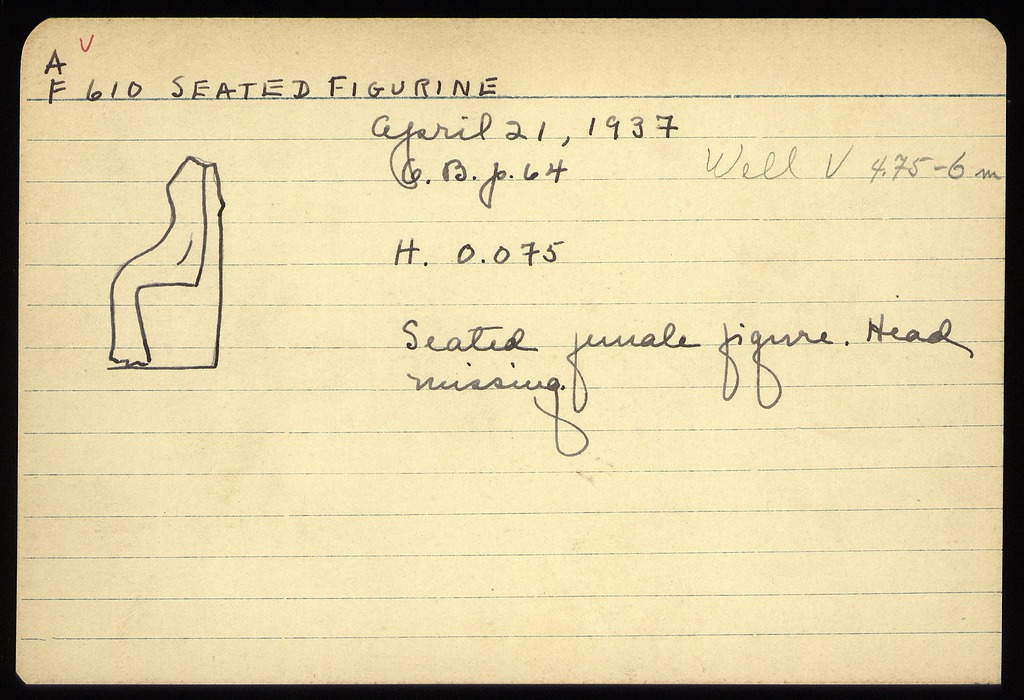 A V
F 610 SEATED FIGURINE
April 21, 1937
B. p. 64
Well V 4.75-6 m
H. 0.075
Seated female figure. Head
missing.